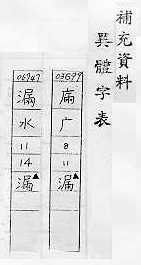 補充資料
異體字表
03699
廗
广
8
11
漏▲
06747
漏
水
11
14
漏▲